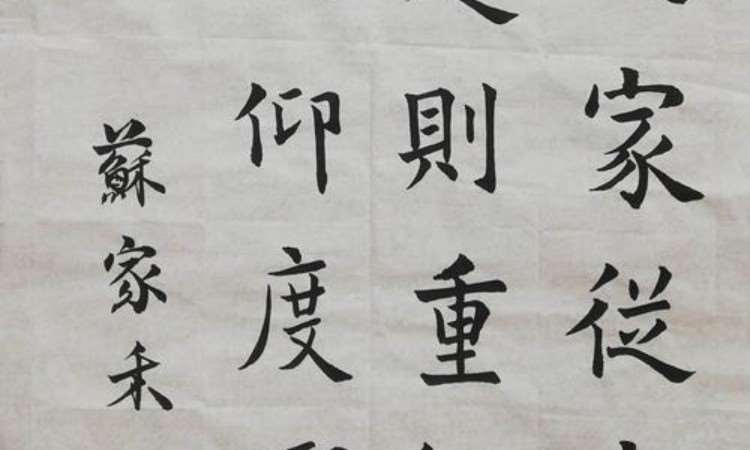 家従
則重
仰度
蘇家禾